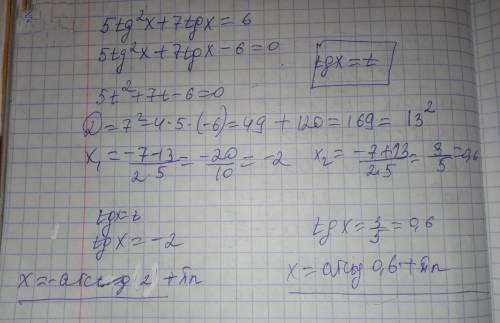 5tg²x+7tgx=6
5tg²x+7tgx-6=0
tgx=t
5t²+7t-6=0
D=7²-4·5·(-6)=49+120=169=13²
x₁=\frac{-7-13}{2·5}=\frac{-20}{10}=-2
x₂=\frac{-7+13}{2·5}=\frac{3}{5}=0,6
tgx=t
tgx=-2
tgx=\frac{3}{5}=0,6
x=-arctg(2)+πn
x=arctg0,6+πn